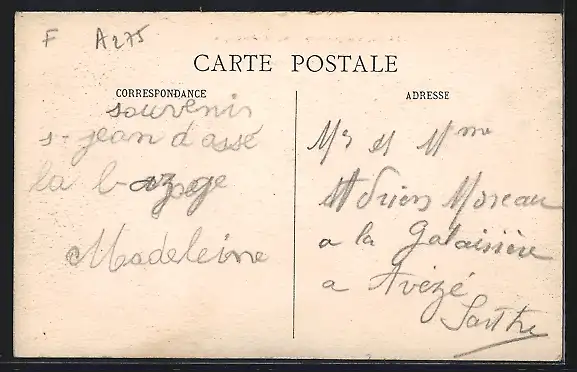 F A275
CARTE POSTALE
CORRESPONDANCE
souvenir
s- jean d'assé
la bazoge
Madeleine
ADRESSE
Mr et Mme
Adrien Moreau
a la Galaisière
a Avezé
Sarthe